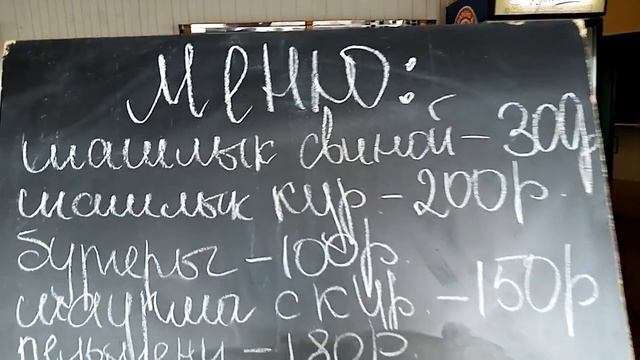 Меню:
шашлык свиной - 300р
шашлык кур. - 200р.
бутеры - 100р.
шаурма с кур. - 150р
пельмени - 180р.